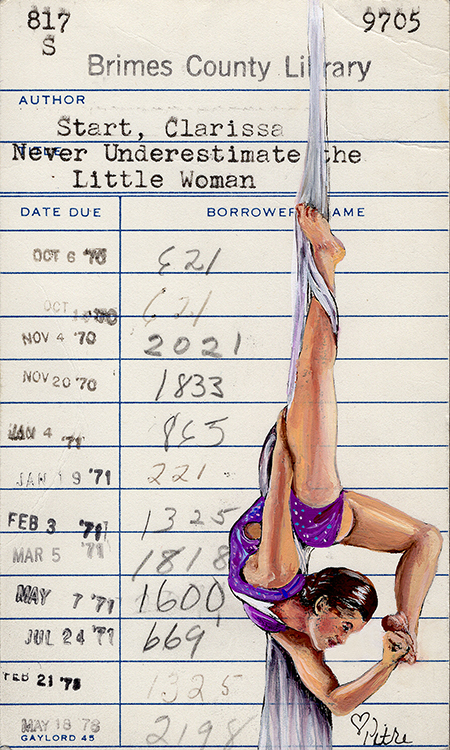 817 9705
S
Brimes County Library
AUTHOR
Start, Clarissa
TITLE
Never Underestimate the
Little Woman
DATE DUE BORROWER NAME
OCT 6 '70 621
OCT 621
NOV 4 '70 2021
NOV 20 '70 1833
JAN 4 '71 865
JAN 19 '71 221
FEB 3 '71 1325
MAR 5 '71 1818
MAY 7 '71 1600
JUL 24 '71 669
FEB 21 '78 1325
MAY 18 '78 2198
GAYLORD 45
Pitre